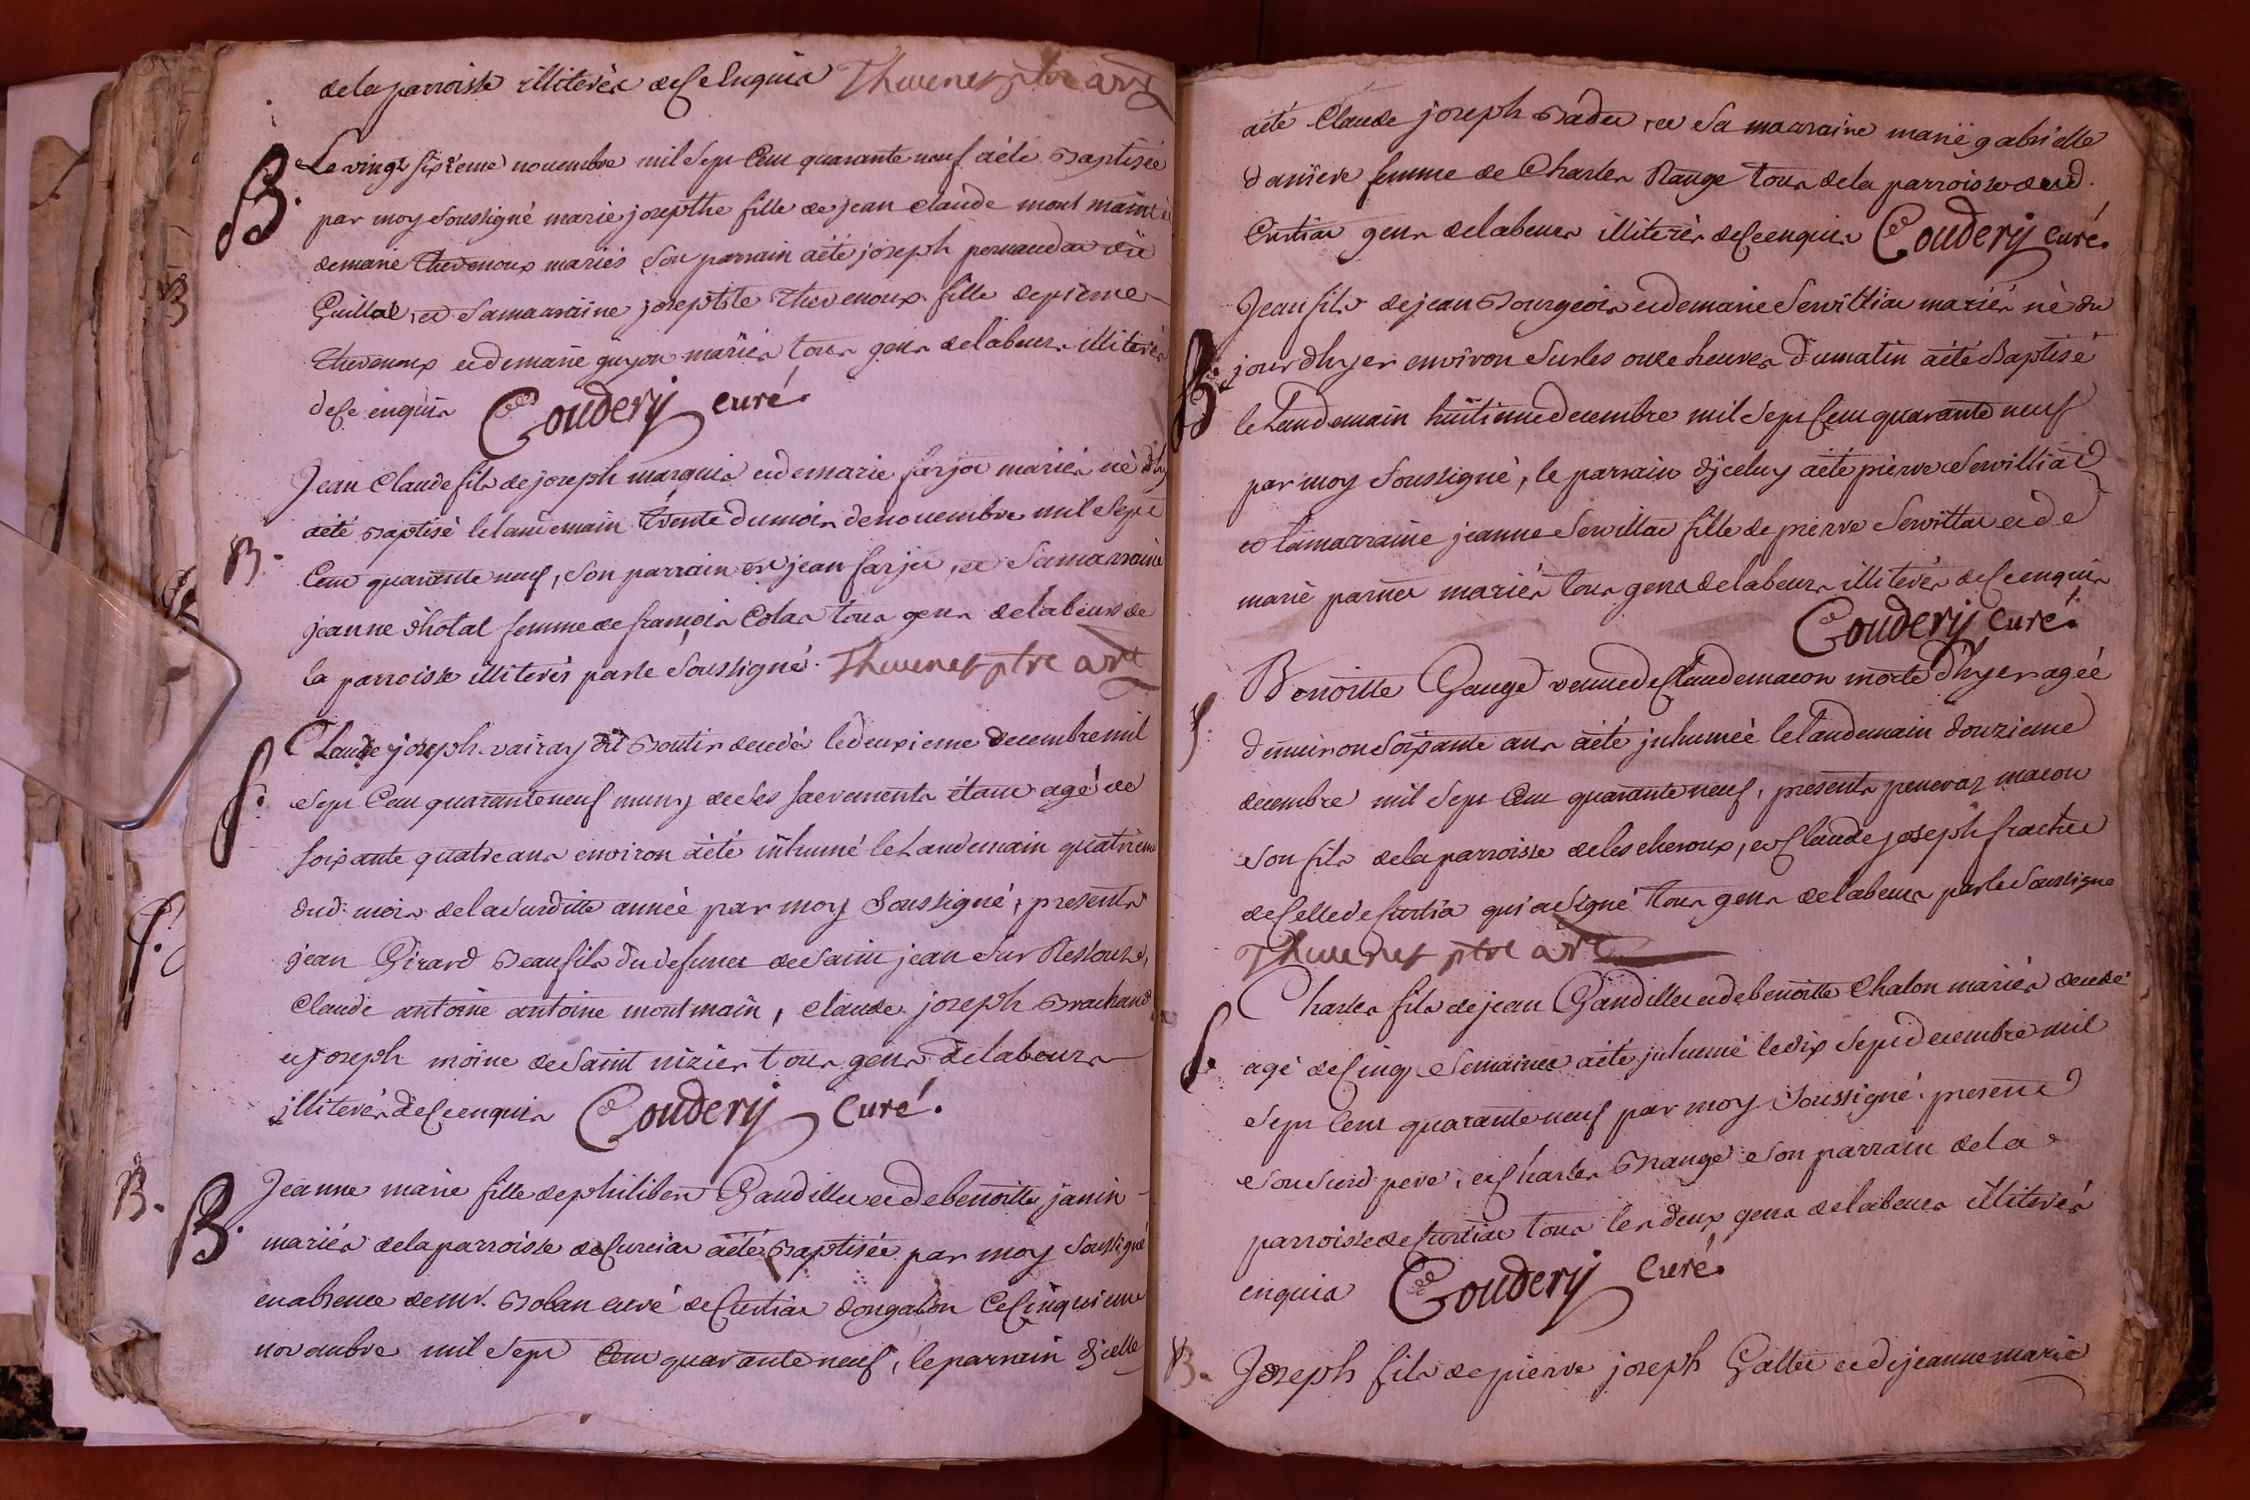 dela parroisse illiterés de ce enquis Thuenet ptre art
B. Le vingt sixieme novembre mil sept cent quarante neuf a été Baptisée
par moy soussigné marie josepthe fille de jean claude mont main et
de marie thevenoux mariés son parrain a été joseph pernaudat dit
Guillot, et sa marraine josephte Thevenoux fille de pierre
thevenoux et de marie guyon mariés tous gens de labeurs illiterés
de ce enquis Coudery curé.
Jean Claude fils de joseph marquis et de marie farjot mariés né d'hyer
B. a été Baptisé le landemain trente du mois de novembre mil sept
Cent quarante neuf, son parrain est jean farjot, et sa marraine
jeanne d'hotal femme de françois Colas tous gens de labeurs de
la parroisse illiterés par le soussigné. Thuenet ptre art
Claude joseph vairay dit Boutir decedé le deuxieme decembre mil
S. sept Cent quarante neuf muny de ses sacrements étant agé de
soixante quatre ans environ a été inhumé le Landemain quatrieme
dud. mois de la susditte année par moy soussigné, presents
jean Girard Beaufils du defunct de saint jean sur Ressouze,
Claude antoine antoine montmain, claude joseph Brachand
et joseph moine de saint nizier tous gens de labeurs
illiterés de ce enquis Coudery Curé.
B. Jeanne marie fille de philibert Gaudillet et de benoitte janin
mariés de la parroisse de Curciat a été Baptisée par moy soussigné
en absence de mr. Boban curé de Curtiat dongalon ce cinquieme
novembre mil sept Cent quarante neuf, le parrain d'jcelle
a été Claude joseph Badet, et sa marraine marie gabrielle
daniere femme de Charles Rauge tous de la parroisse dud.
Curtiat gens de labeurs illiterés de ce enquis Coudery curé.
Jean fils de jean Bourgeois et de marie Servilliat mariés né du
B. jour d'hyer environ sur les onze heures du matin a été Baptisé
le Landemain huitieme decembre mil sept Cent quarante neuf
par moy soussigné, le parrain d'jceluy a été pierre Servilliat
et la marraine jeanne Servillat fille de pierre Servillat et de
marie parnet mariés tous gens de labeurs illiterés de ce enquis
Coudery Curé.
S. Benoitte Gauge veuve de Claude macon morte d'hyer agée
d'environ soixante ans a été jnhumée le landemain douzieme
decembre mil sept Cent quarante neuf, presents macon
son fils de la parroisse de lescheroux, et Claude joseph frachet
de celle de Curtia qui a signé tous gens de labeurs par le soussigné
Thuenet ptre art
Charles fils de jean Gaudillet et de benoitte Chalon mariés decedé
S. agé de Cinq semaines a été jnhumé le dix sept decembre mil
sept Cent quarante neuf par moy soussigné. present
son susd. pere, et Charles Rauge son parrain de la
parroisse de Curtiat tous les deux gens de labeurs illiterés
enquis Coudery Curé.
B. Joseph fils de pierre joseph Gallet et de jeanne marie